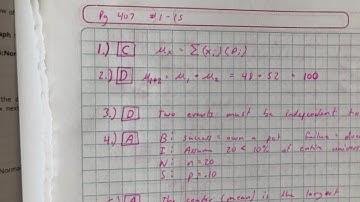 Pg 407 #1-15
1.) C μx = Σ(xi)(pi)
2.) D μ1+2 = μ1 + μ2 = 48 + 52 = 100
3.) D Two events must be independent to
4.) A B: success = own a pet failure = does
I: Assume 20 < 10% of entire
N: n = 20
S: p = .10
A The center (mean) is the largest
Norma